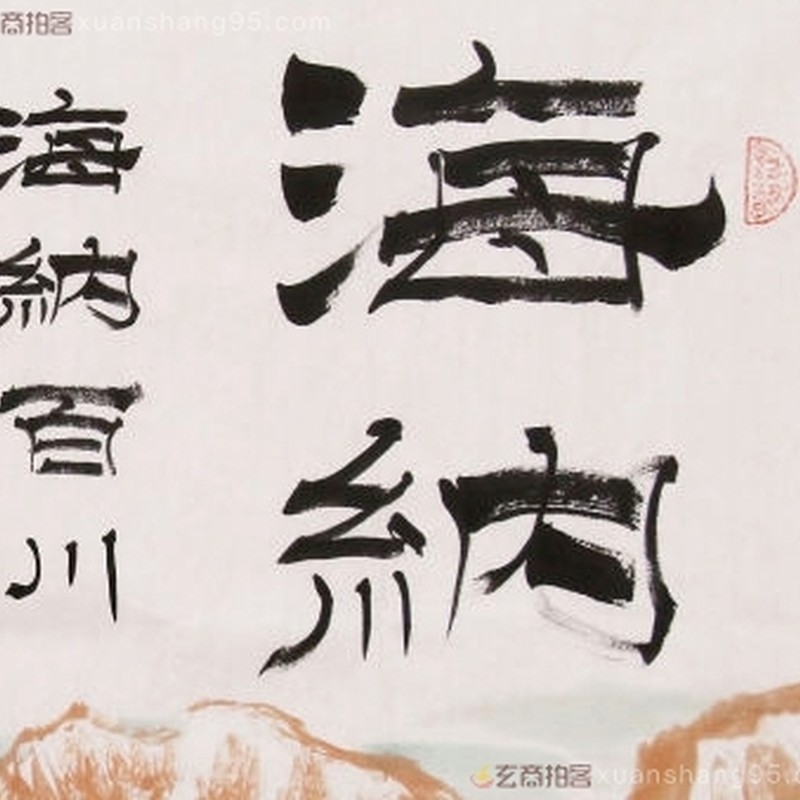 商拍客 xuanshang95.com
海納
海納百川
玄商拍客 xuanshang95.c